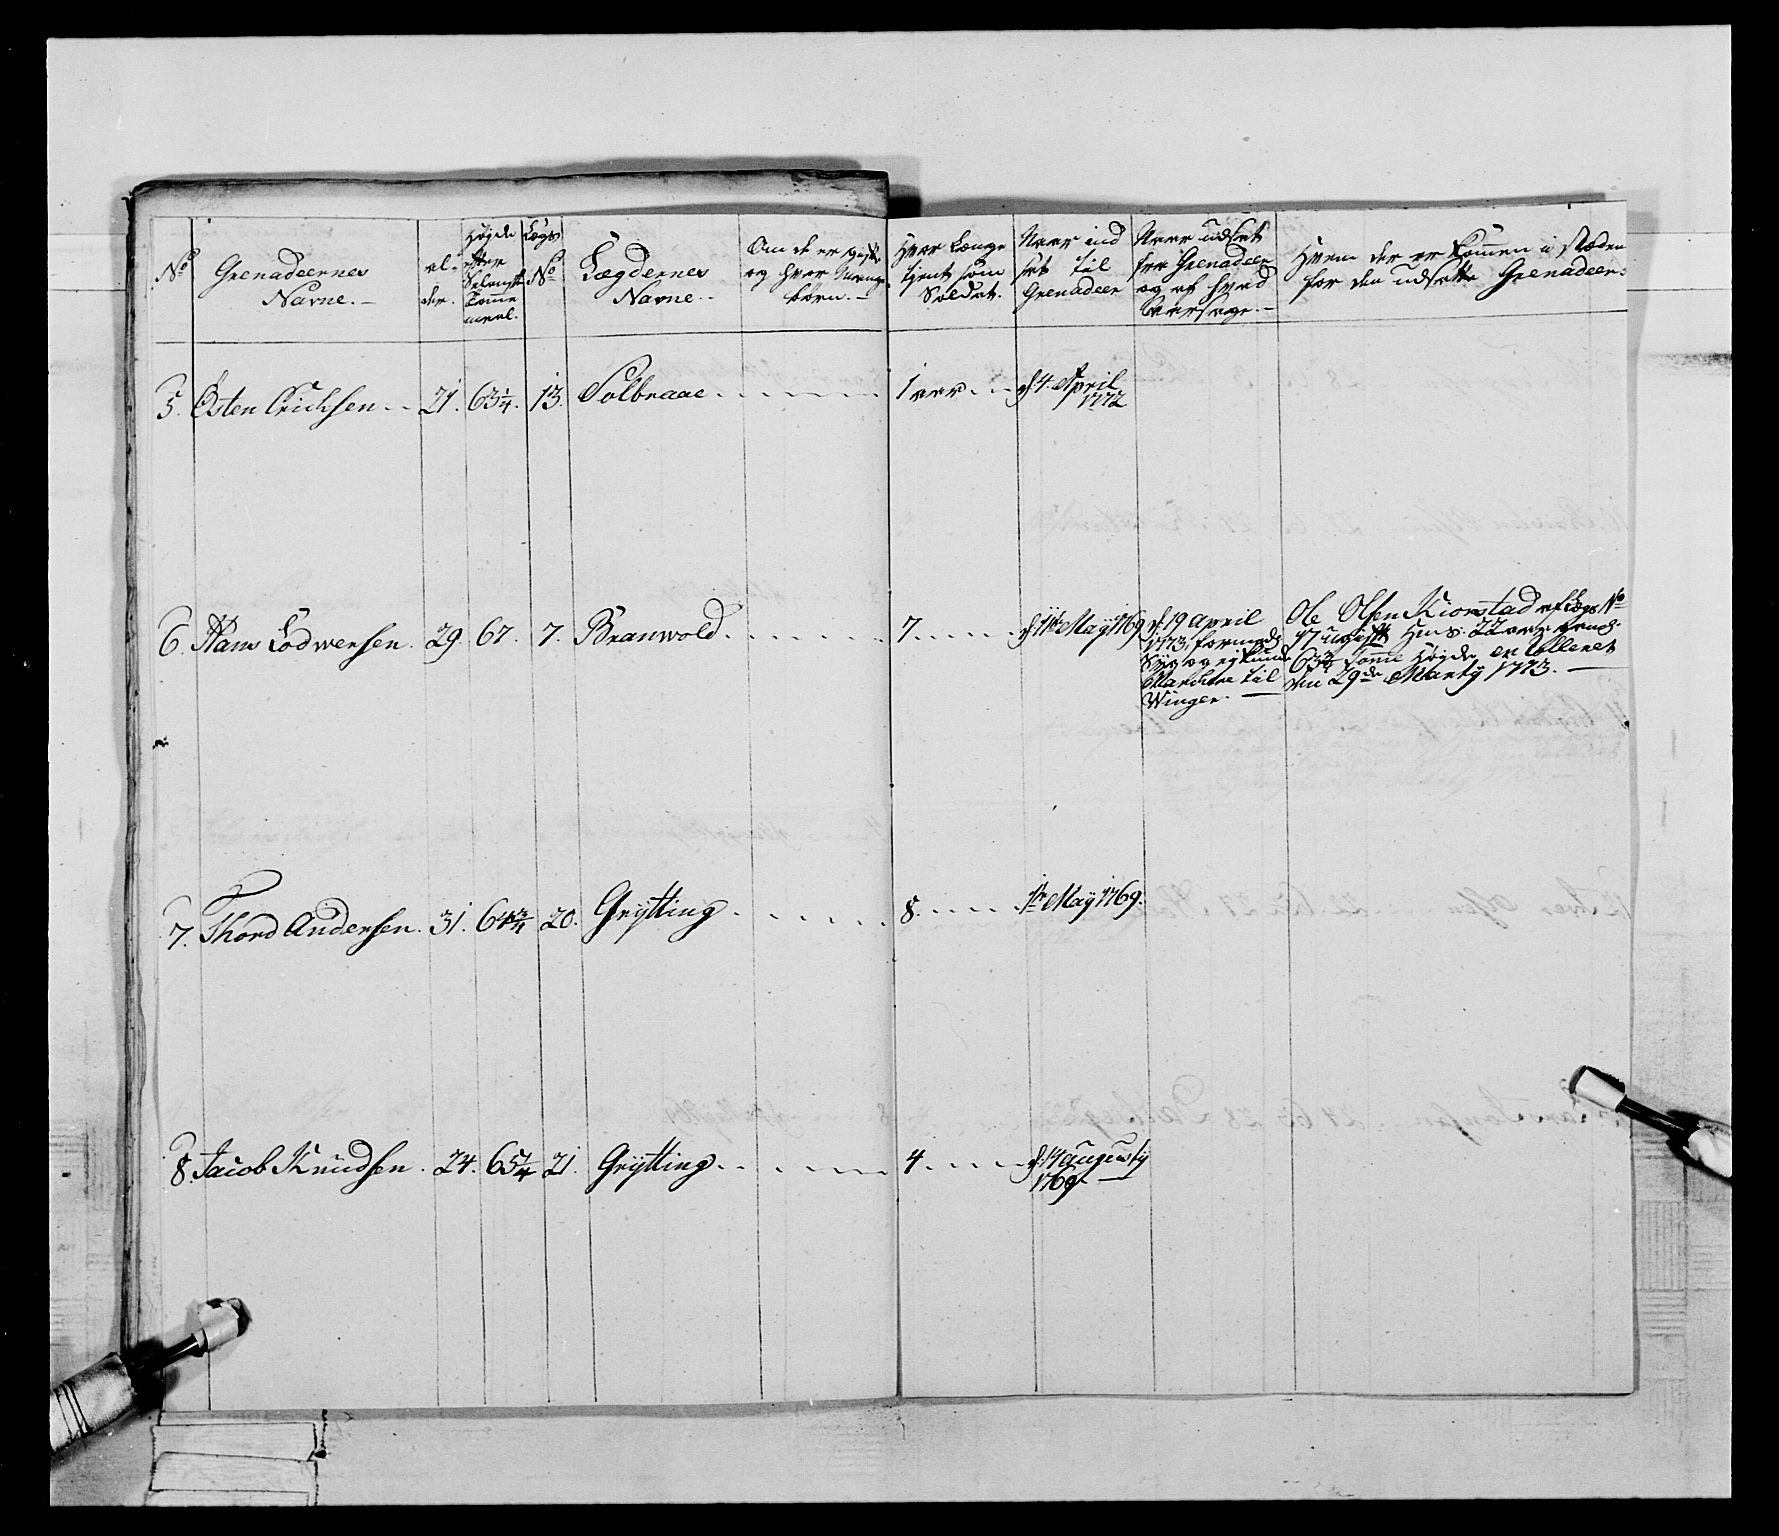 No
Grenadeernes
Navne.
al-
der.
Høyde
efter
Tomme
maal.
Lægs
No
Lægdernes
Navne.
Om de er gift
og hvor mange
børn.
Hvor Længe
tient som
Soldat.
Naar ind
sat til
Grenadeer
Naar udsat
fra Grenadeer
og af hvad
Aarsage.
Hvem der er kommen i stæden
for den udsatte Grenadeer.
5. Østen Erichsen 21. 63 1/4. 13. Solbraae 1 aar d. 4. April
1772
6. Hans Lodwersen. 29. 67. 7. Branwold 7. d. 1te May 1769
d. 19 April
1773, formedelst
Syg og ej kunde
Marchere til
Winger.
Ole Olsen Kiorstad af Lægs No
17 ugift 22 aar
63 3/4 Tomme Høyde er
den 29de Marty 1773.
7. Thord Andersen. 31. 64 3/4 20. Grytting 8. 1te May 1769.
8. Jacob Knudsen. 24. 65 1/4 21. Grytting 4. d. 14 Augusty
1769